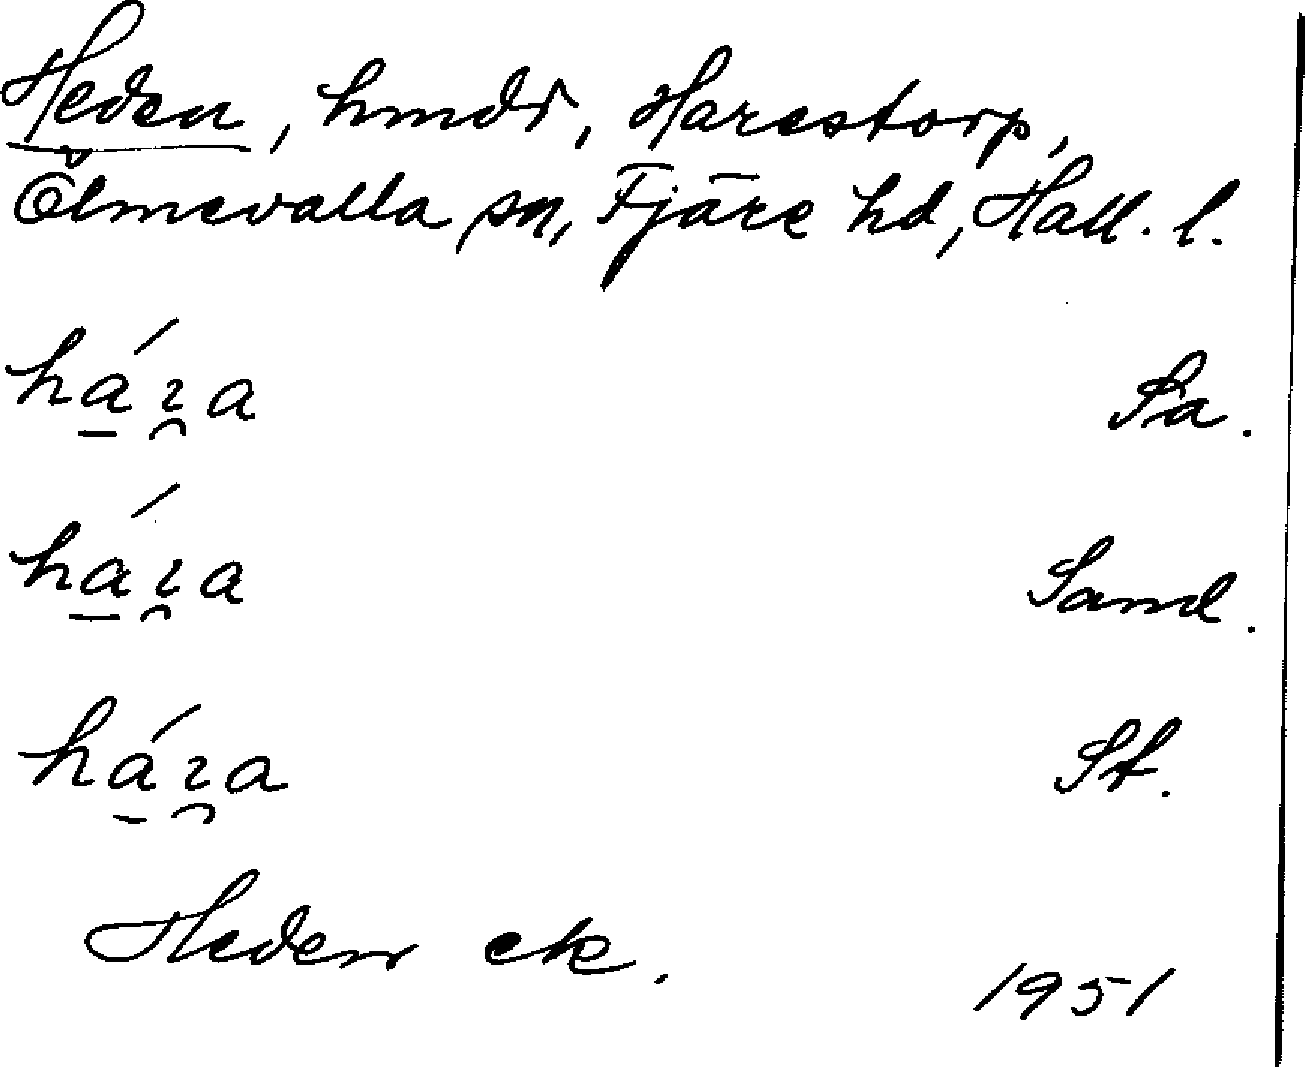 Heden, hmdr, Harestorp,
Ölmevalla sn, Fjäre hd, Hall. l.
háɿa Sa.
háɿa Sand.
háɿa St.
Heden ek.
1951